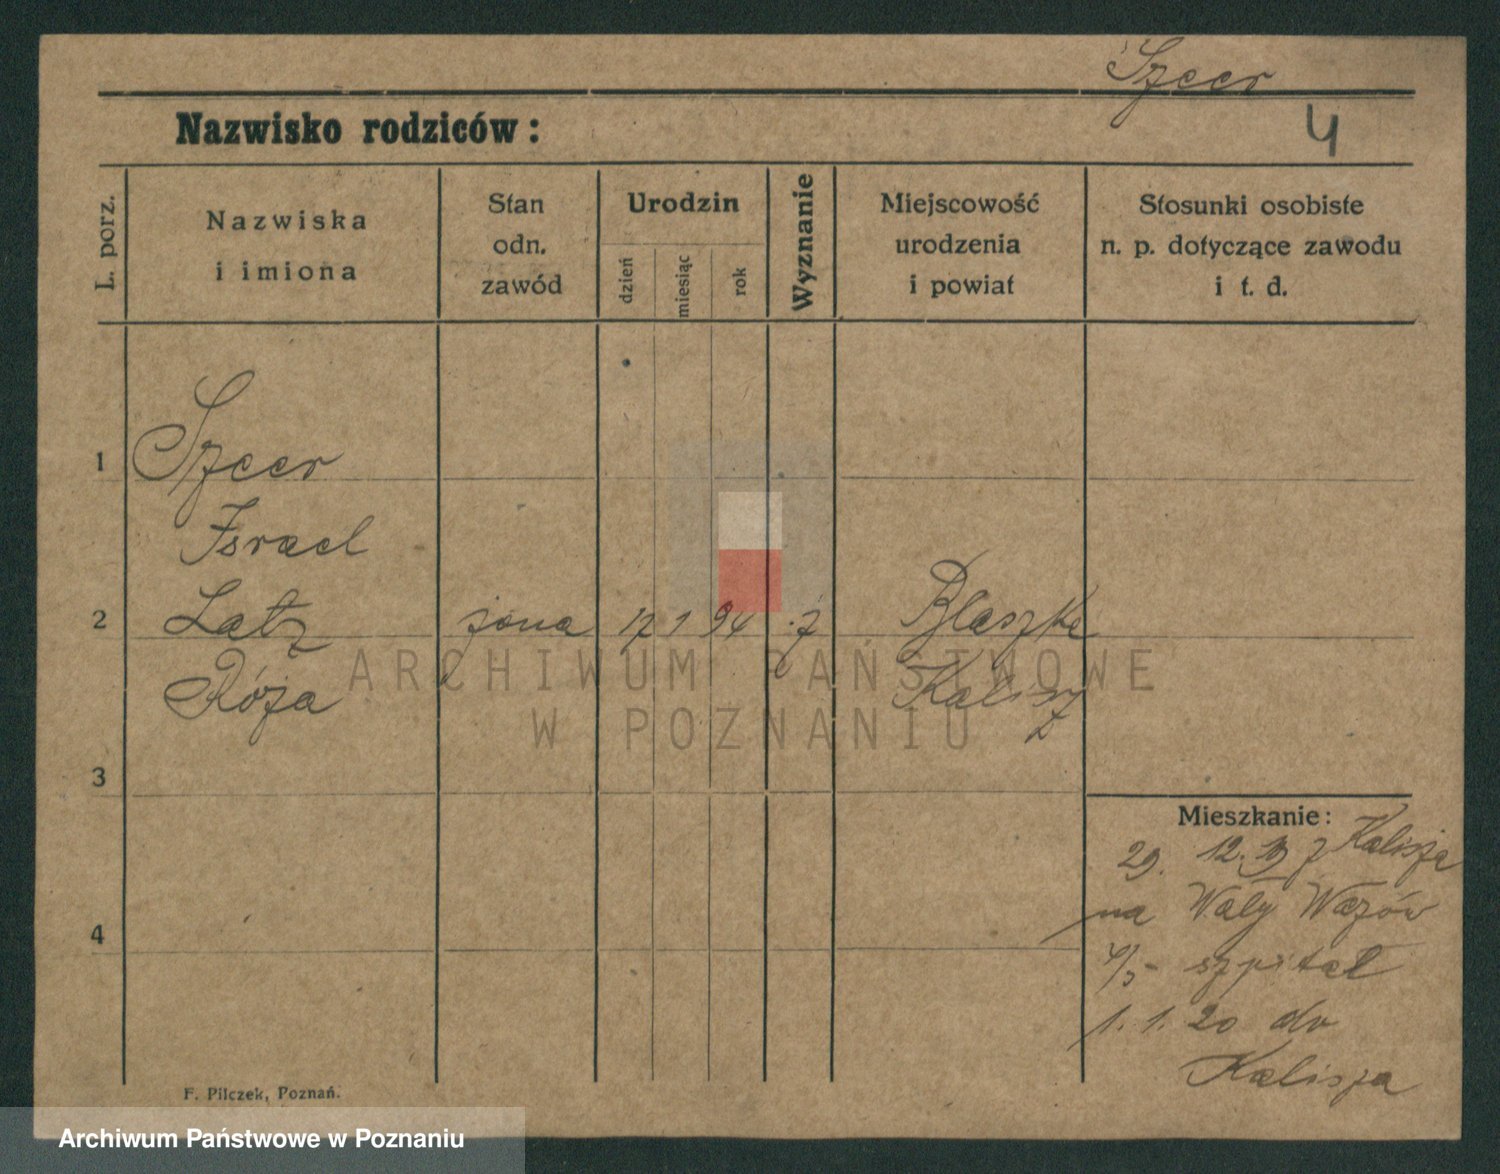 Szeer
Nazwisko rodziców:
4
L. porz.
Nazwiska
i imiona
Stan
odn.
zawód
Urodzin
dzień
miesiąc
rok
Wyznanie
Miejscowość
urodzenia
i powiat
Stosunki osobiste
n. p. dotyczące zawodu
i t. d.
1
Szeer
Israel
2
Latz żona 17 1 94 ż Blaszke
Róża Kalisz
3
Mieszkanie:
29. 12. 19 z Kalisza
na Wały Wazów
4/5 szpital
4
1. 1. 20 do
Kalisza
F. Pilczek, Poznań.
ARCHIWUM PAŃSTWOWE
W POZNANIU
Archiwum Państwowe w Poznaniu